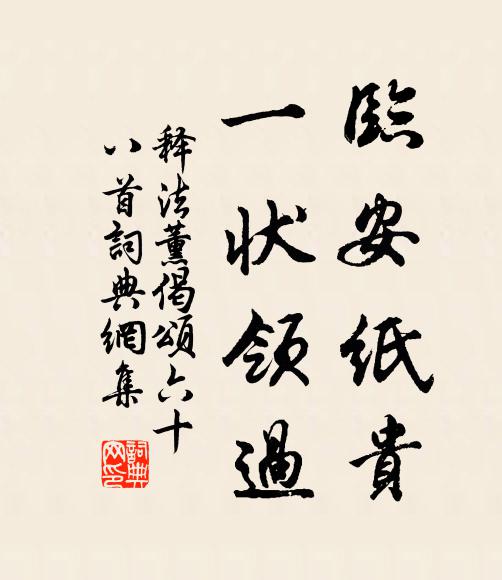 臨安紙貴
一状領過
释法薰偈頌六十
八首詞典網集
詞典
网印